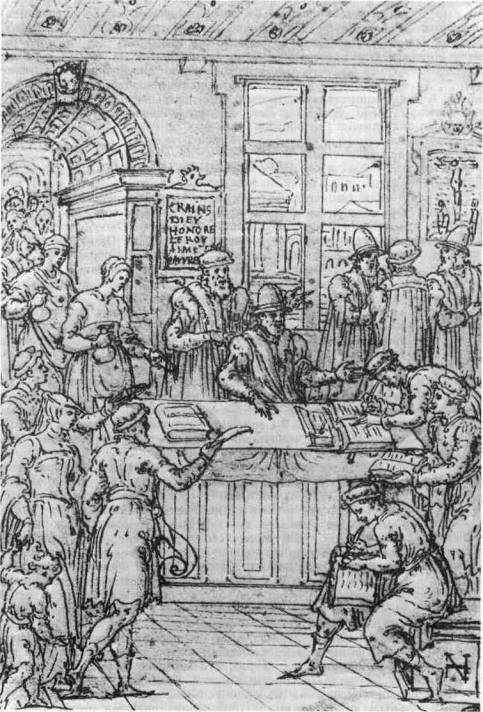 CRAINS
DIEV
HONORE
LE ROY
AIME